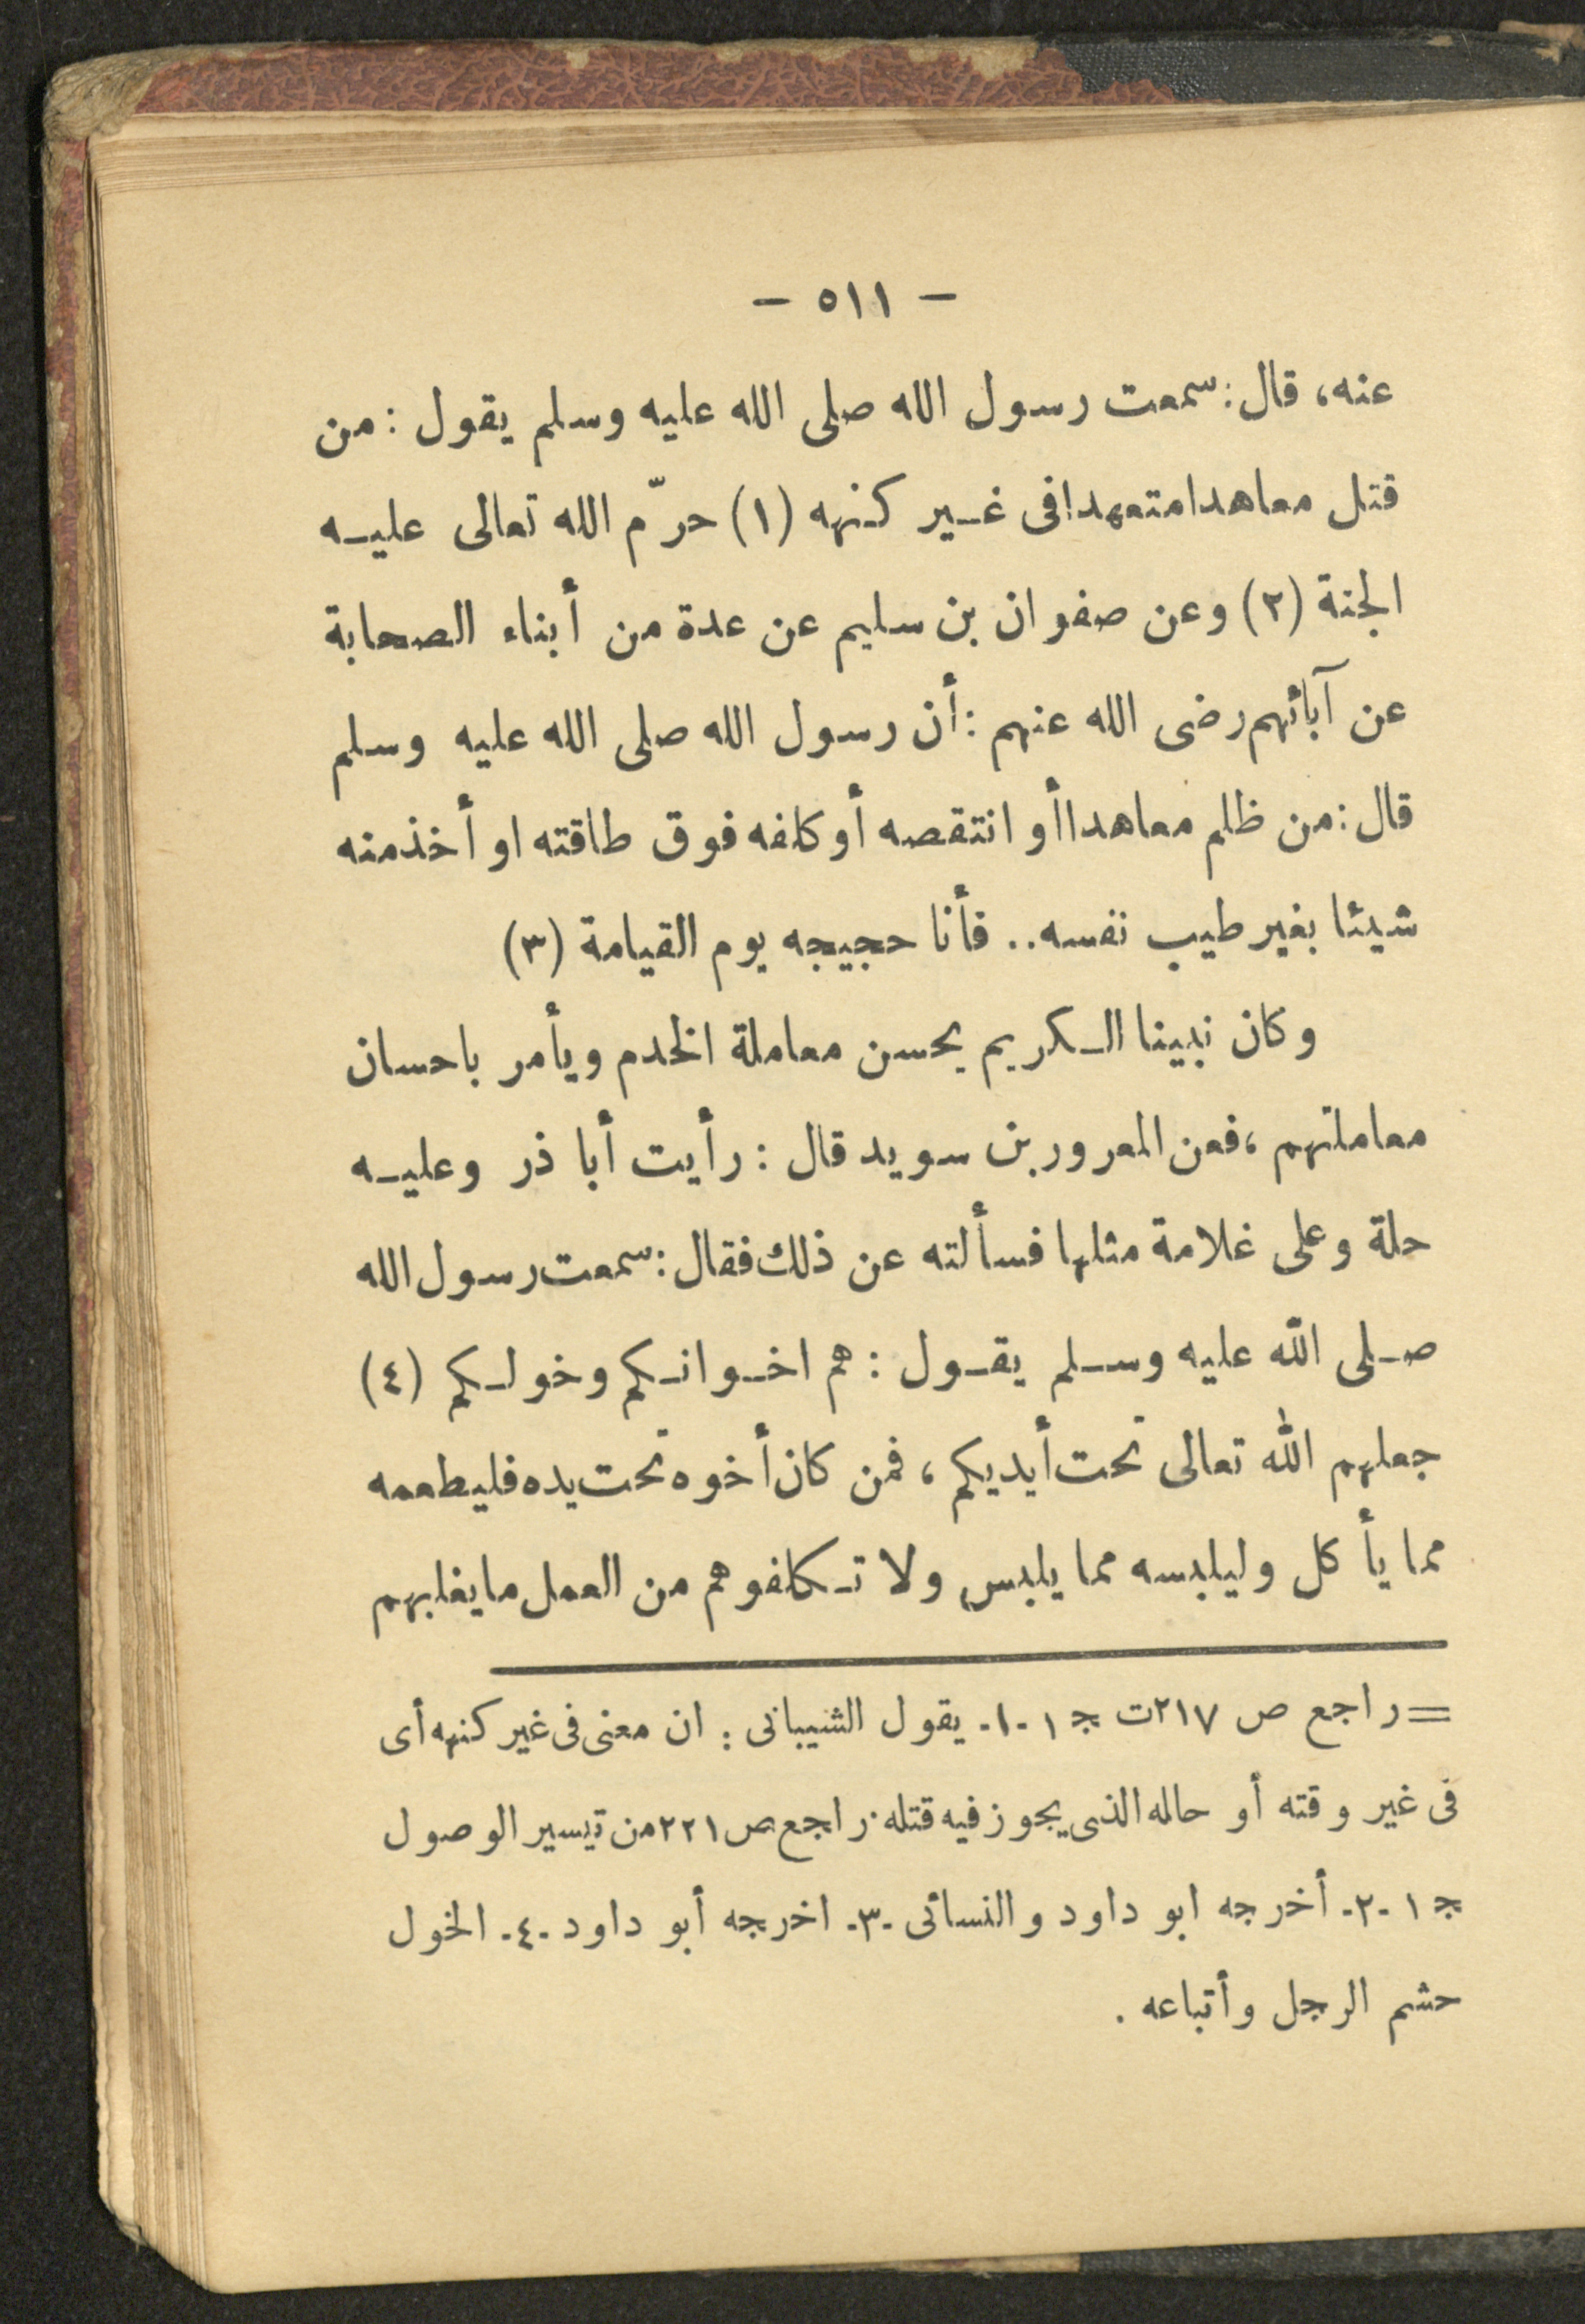 — ٥١١ —
عنه، قال: سمعت رسول الله صلى الله عليه وسلم يقول : من
قتل معاهدا متعهدا فى غير كنهه (١) حرّم الله تعالى عليه
الجنة (٢) وعن صفوان بن سليم عن عدة من أبناء الصحابة
عن آبائهم رضى الله عنهم : أن رسول الله صلى الله عليه وسلم
قال : من ظلم معاهدا أو انتقصه أو كلفه فوق طاقته او أخذ منه
شيئا بغير طيب نفسه .. فأنا حجيجه يوم القيامة (٣)
وكان نبينا الكريم يحسن معاملة الخدم ويأمر باحسان
معاملتهم ، فعن المعرور بن سويد قال : رأيت أبا ذر وعليه
حلة وعلى غلامة مثلها فسألته عن ذلك فقال : سمعت رسول الله
صلى الله عليه وسلم يقول : هم اخوانكم وخولكم (٤)
جعلهم الله تعالى تحت أيديكم ، فمن كان أخوه تحت يده فليطعمه
مما يأكل وليلبسه مما يلبس ولا تكلفوهم من العمل ما يغلبهم
= راجع ص ٢١٧ ت ج ١ -١- يقول الشيبانى : ان معنى فى غير كنهه أى
فى غير وقته أو حاله الذى يجوز فيه قتله . راجع ص ٢٢١ من تيسير الوصول
ج ١ -٢- أخرجه ابو داود والنسائى -٣- اخرجه أبو داود -٤- الخول
حشم الرجل وأتباعه .